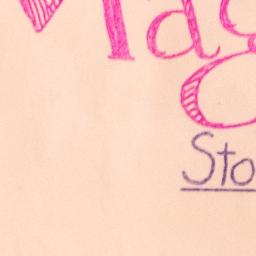 Mag
Sto